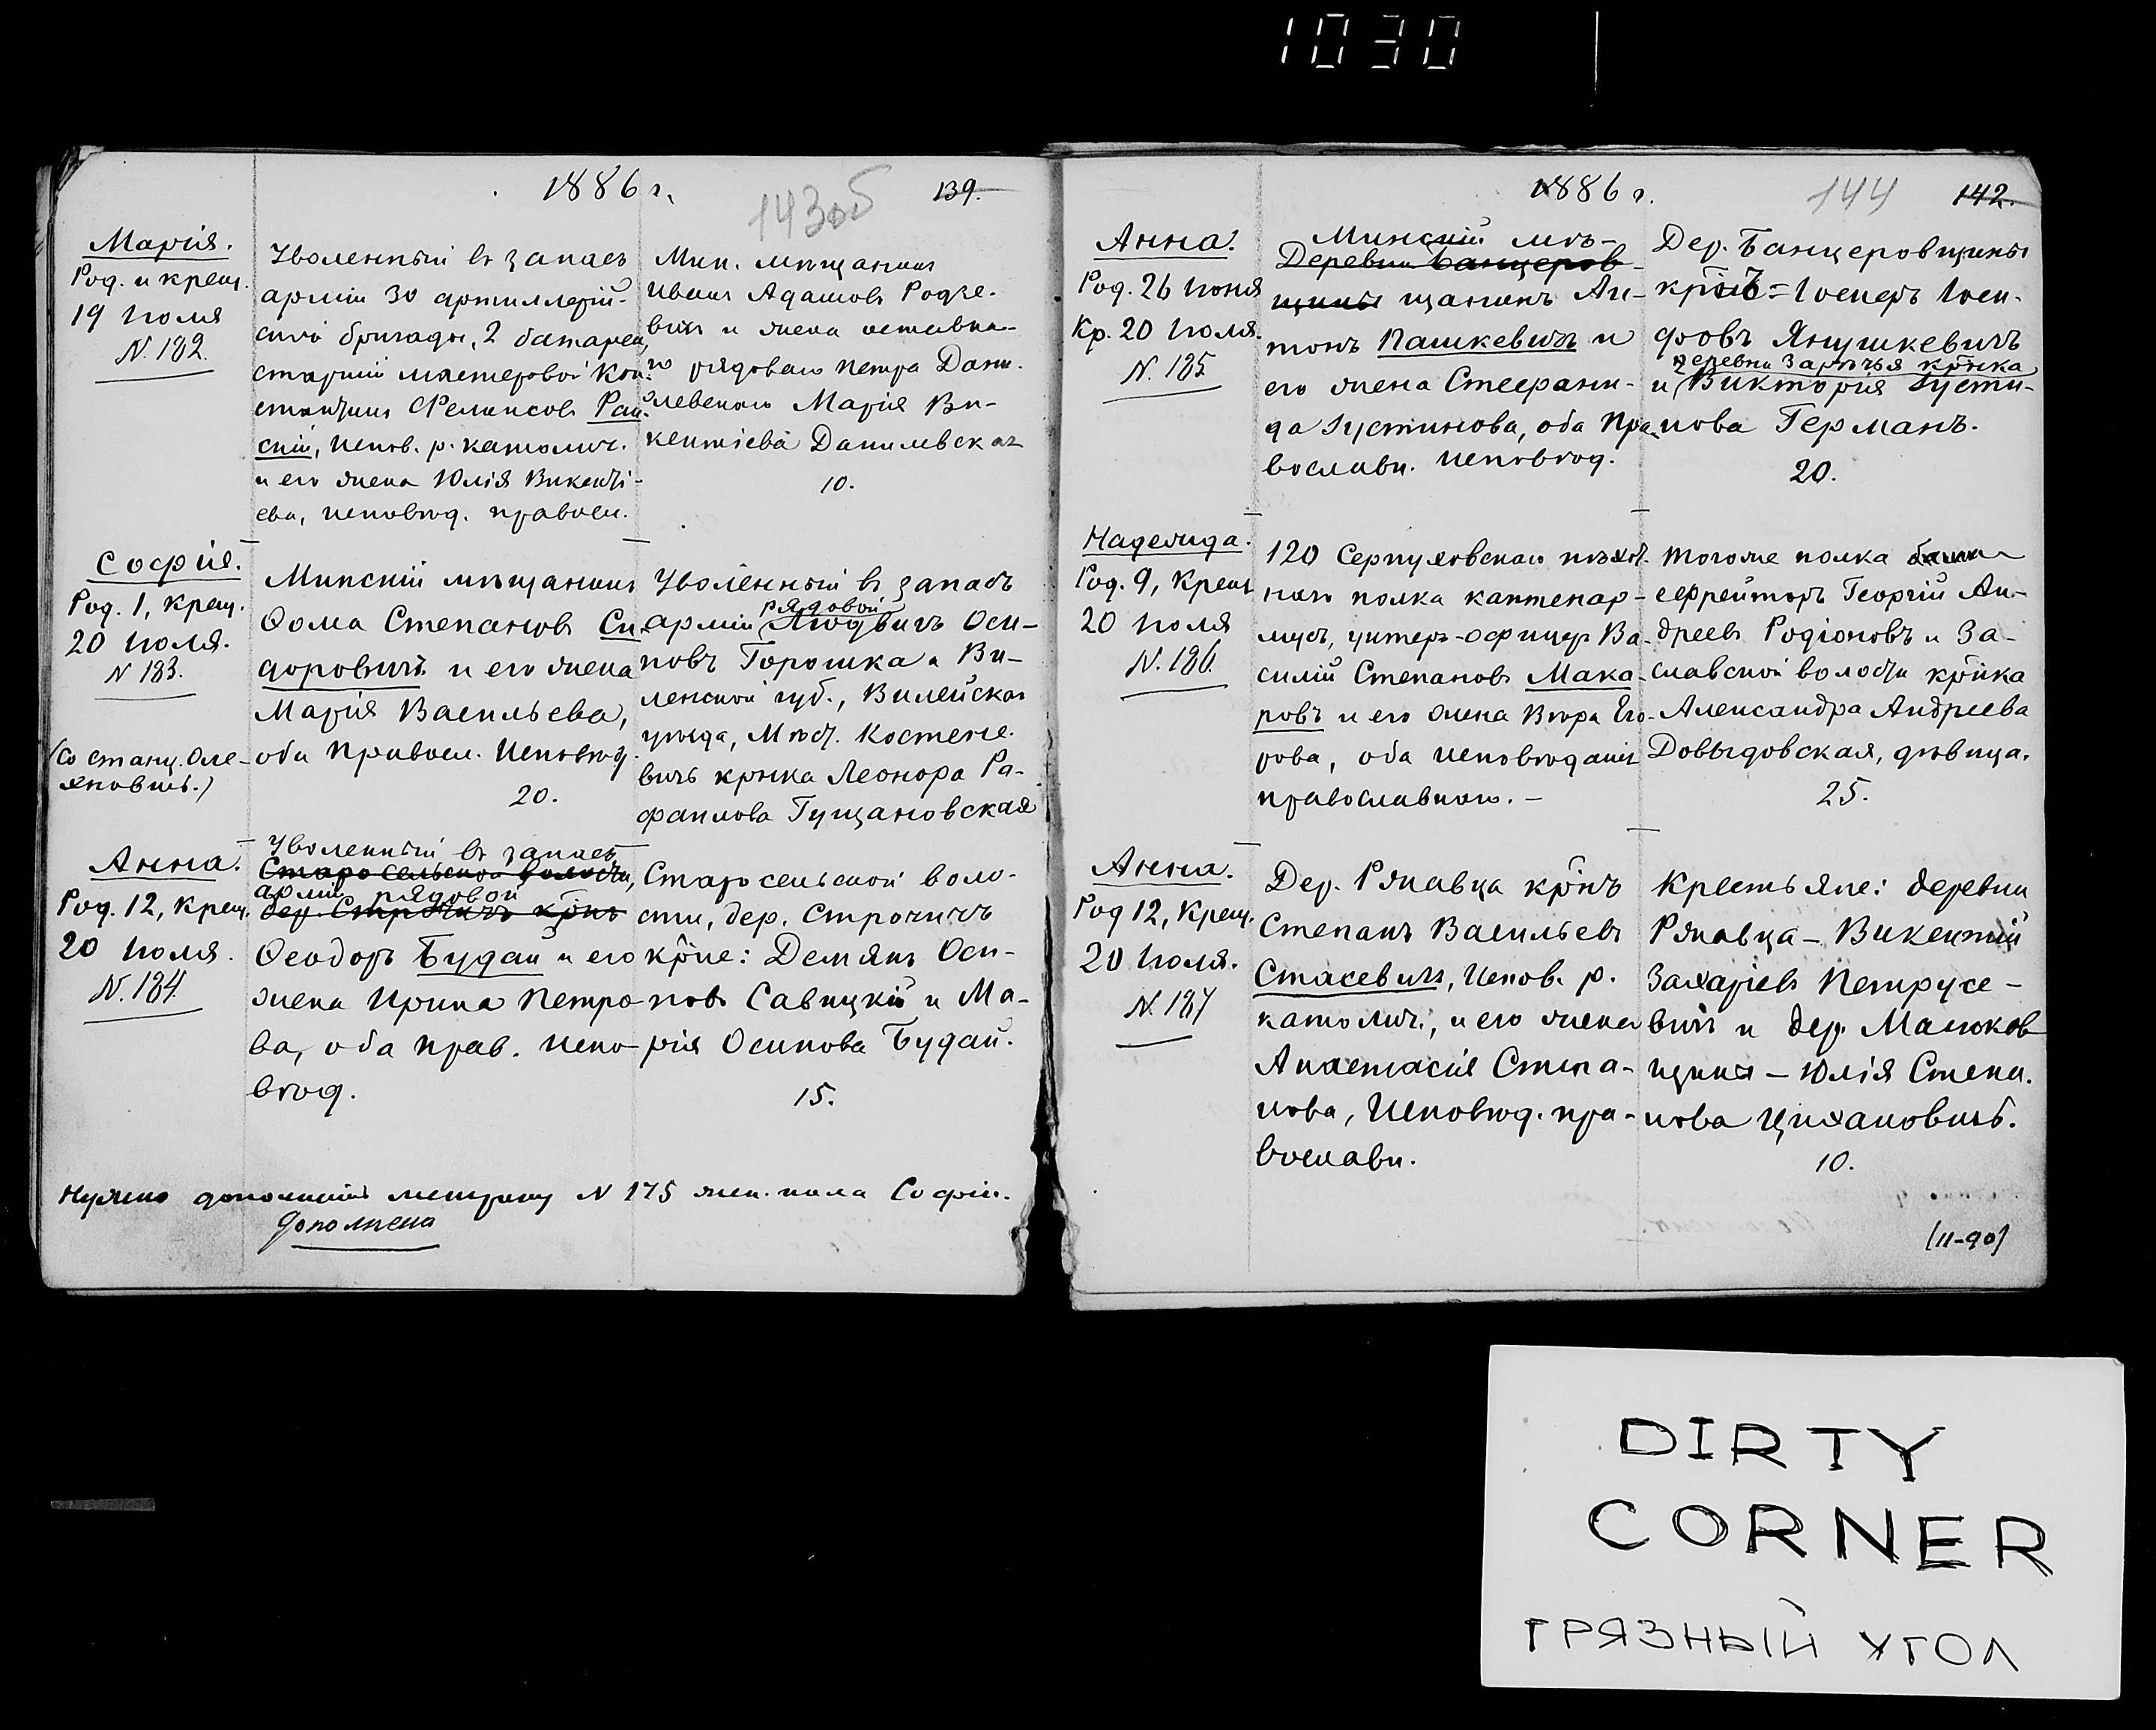 1030
1886 г.
143об
139.
Марія.
Род. и крещ.
19 Іюля
N. 182.
Уволенный въ запасъ
арміи 30 артиллерій-
ской бригады, 2 батареи,
старшій мастеровой Кон-
стантинъ Феликсовъ Рай-
скій, испов. р. католич.
и его жена Юлія Викенті-
ева, исповѣд. правосл.
Мин. мѣщанинъ
Иванъ Адамовъ Родзе-
вичъ и жена отставна-
го рядоваго Петра Дани-
левскаго Марія Ви-
кентіева Данилевская
10.
Софія.
Род. 1, Крещ.
20 Іюля.
N 183.
(Со станц. Оле-
хновичъ.)
Минскій мѣщанинъ
Ѳома Степановъ Си-
доровичъ и его жена
Марія Васильева,
оба Правосл. Исповѣд.
20.
Уволенный въ запасъ
рядовой
арміи Людвигъ Оси-
повъ Горошка и Ви-
ленской губ., Вилейскаго
уѣзда, Мѣст. Костене-
вичъ крѣнка Леонора Ра-
фаилова Гущановская
Анна.
Род. 12, Крещ.
20 Іюля.
N. 184.
Уволенный въ запасъ
Старосельской волости,
арміи рядовой
дер. Строчичъ крнъ
Ѳеодоръ Будай и его
жена Ирина Петро-
ва, оба прав. испо-
вѣд.
Старосельской воло-
сти, дер. Строчичъ
крне: Демянъ Оси-
повъ Савицкій и Ма-
рія Осипова Будай.
15.
Нужно дополнить метрику N 175 жен. пола Софіи.
Дополнена
1886 г.
144
142.
Анна.
Род. 26 Іюня
Кр. 20 Іюля.
N. 185
Минскій мѣ-
Деревни Банцеров-
щины щанинъ Ан-
тонъ Пашкевичъ и
его жена Стефани-
да Іустинова, оба Пра-
вославн. исповѣд.
Дер. Банцеровщины
крнъ = Іосифъ Іоси-
фовъ Янушкевичъ
деревни Зарѣчья крнка
и Викторія Іусти-
нова Германъ.
20.
Надежда.
Род. 9, Крещ
20 Іюля
N. 186.
120 Серпуховскаго пѣхот-
наго полка каптенар-
мусъ, унтеръ-офицеръ Ва-
силій Степановъ Мака-
ровъ и его жена Вѣра Его-
рова, оба исповѣданія
православнаго. -
Тогоже полка
ефрейторъ Георгій Ан-
дреевъ Родіоновъ и За-
славской волости крнка
Александра Андреева
Довыдовская, дѣвица.
25.
Анна.
Род 12, Крещ.
20 Іюля.
N. 187
Дер. Ржавца крнъ
Степанъ Васильевъ
Стасевичъ, Испов. р.
католич., и его жена
Анастасія Степа-
нова, Исповѣд. пра-
вославн.
Крестьяне: деревни
Ржавца - Викентій
Захаріевъ Петрусе-
вичъ и дер. Малюков
щины - Юлія Степа-
нова Цихановичъ.
10.
(11-90)
DIRTY
CORNER
ГРЯЗНЫЙ УГОЛ